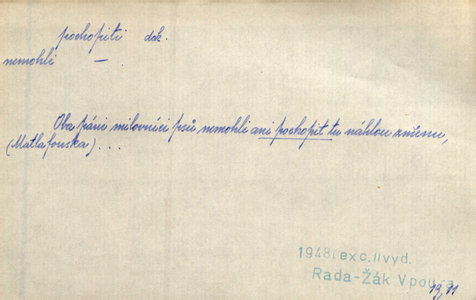 pochopiti dok.
nemohli —
Oba páni milovníci psů nemohli ani pochopit tu náhlou změnu,
(Matlafouska) . . .
1948: exc. II vyd.
Rada-Žák Vpoura
19, 11